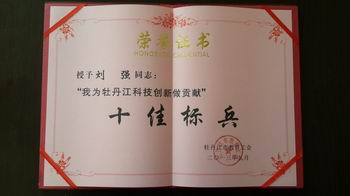 荣誉证书
HONORARY CREDENTIAL
授予刘 强同志:
“我为牡丹江科技创新做贡献”
十佳标兵
牡丹江市总工会
二〇一三年九月